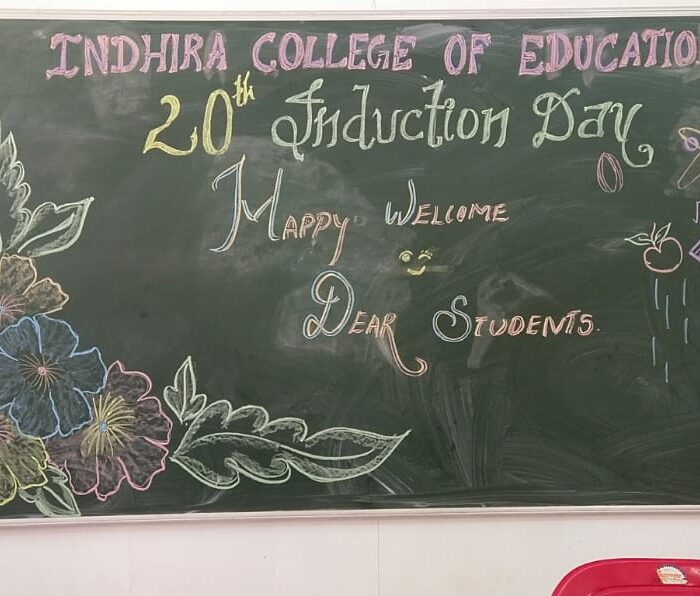 INDHIRA COLLEGE OF EDUCATIO
20th Induction Day
Happy Welcome
Dear Students.